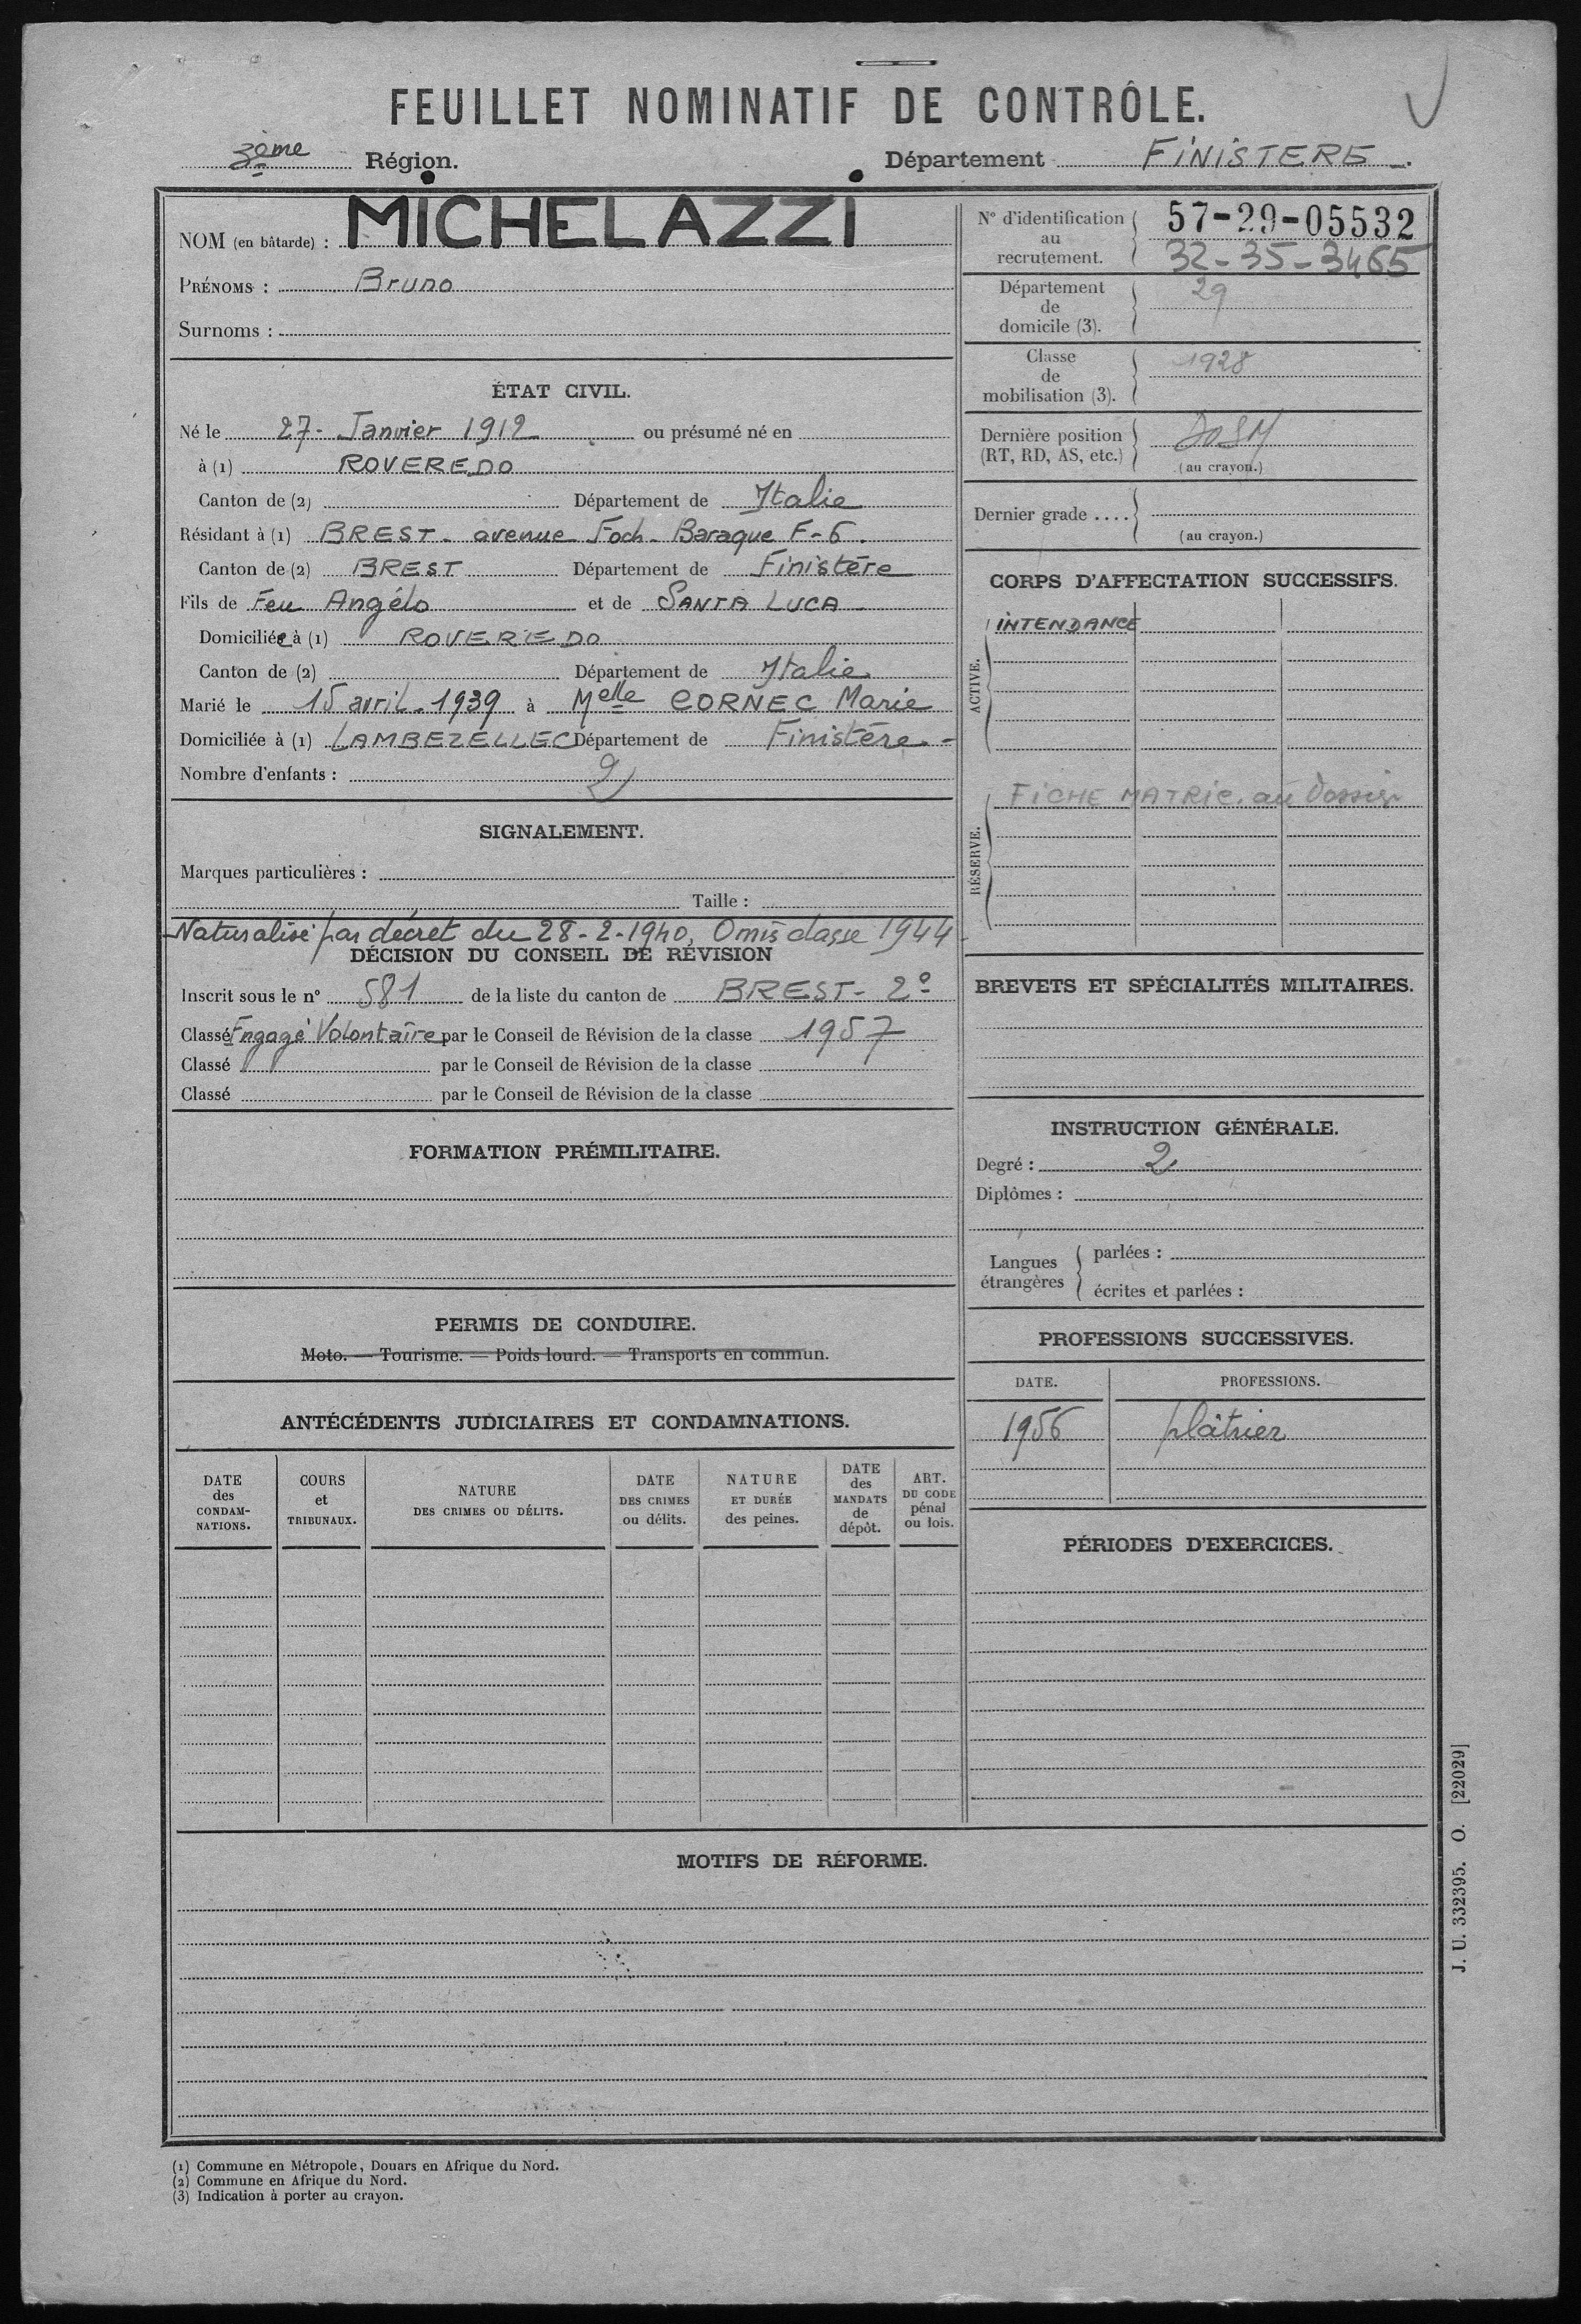 FEUILLET NOMINATIF DE CONTRÔLE.
3ème Région. Département FINISTERE.
NOM (en bâtarde) : MICHELAZZI
PRÉNOMS : Bruno
Surnoms :
ÉTAT CIVIL.
Né le 27- Janvier 1912 ou présumé né en
à (1) ROVEREDO
Canton de (2) Département de Italie
Résidant à (1) BREST - avenue Foch - Baraque F-6.
Canton de (2) BREST Département de Finistère
Fils de Feu Angélo et de SANTA LUCA
Domiciliée à (1) ROVEREDO
Canton de (2) Département de Italie
Marié le 15 avril 1939 à Melle CORNEC Marie
Domiciliée à (1) LAMBEZELLEC Département de Finistère -
Nombre d'enfants : 2
SIGNALEMENT.
Marques particulières :
Taille :
Naturalisé par décret du 28-2-1940, Omis classe 1944
DÉCISION DU CONSEIL DE RÉVISION
Inscrit sous le n° 581 de la liste du canton de BREST - 2e
Classé Engagé Volontaire par le Conseil de Révision de la classe 1957
Classé par le Conseil de Révision de la classe
Classé par le Conseil de Révision de la classe
FORMATION PRÉMILITAIRE.
PERMIS DE CONDUIRE.
Moto. — Tourisme. — Poids lourd. — Transports en commun.
ANTÉCÉDENTS JUDICIAIRES ET CONDAMNATIONS.
DATE des CONDAM-NATIONS.
COURS et TRIBUNAUX.
NATURE DES CRIMES OU DÉLITS.
DATE DES CRIMES ou délits.
NATURE ET DURÉE des peines.
DATE des MANDATS de dépôt.
ART. DU CODE pénal ou lois.
N° d'identification au recrutement. 57-29-05532
32-35-3465
Département de domicile (3). 29
Classe de mobilisation (3). 1928
Dernière position (RT, RD, AS, etc.) DOSM
(au crayon.)
Dernier grade ....
(au crayon.)
CORPS D'AFFECTATION SUCCESSIFS.
ACTIVE.
INTENDANCE
RÉSERVE.
FICHE MATRIC. au Dossier
BREVETS ET SPÉCIALITÉS MILITAIRES.
INSTRUCTION GÉNÉRALE.
Degré : 2
Diplômes :
Langues étrangères
parlées :
écrites et parlées :
PROFESSIONS SUCCESSIVES.
DATE. PROFESSIONS.
1956 plâtrier
PÉRIODES D'EXERCICES.
MOTIFS DE RÉFORME.
J. U. 332395. O. [22029]
(1) Commune en Métropole, Douars en Afrique du Nord.
(2) Commune en Afrique du Nord.
(3) Indication à porter au crayon.